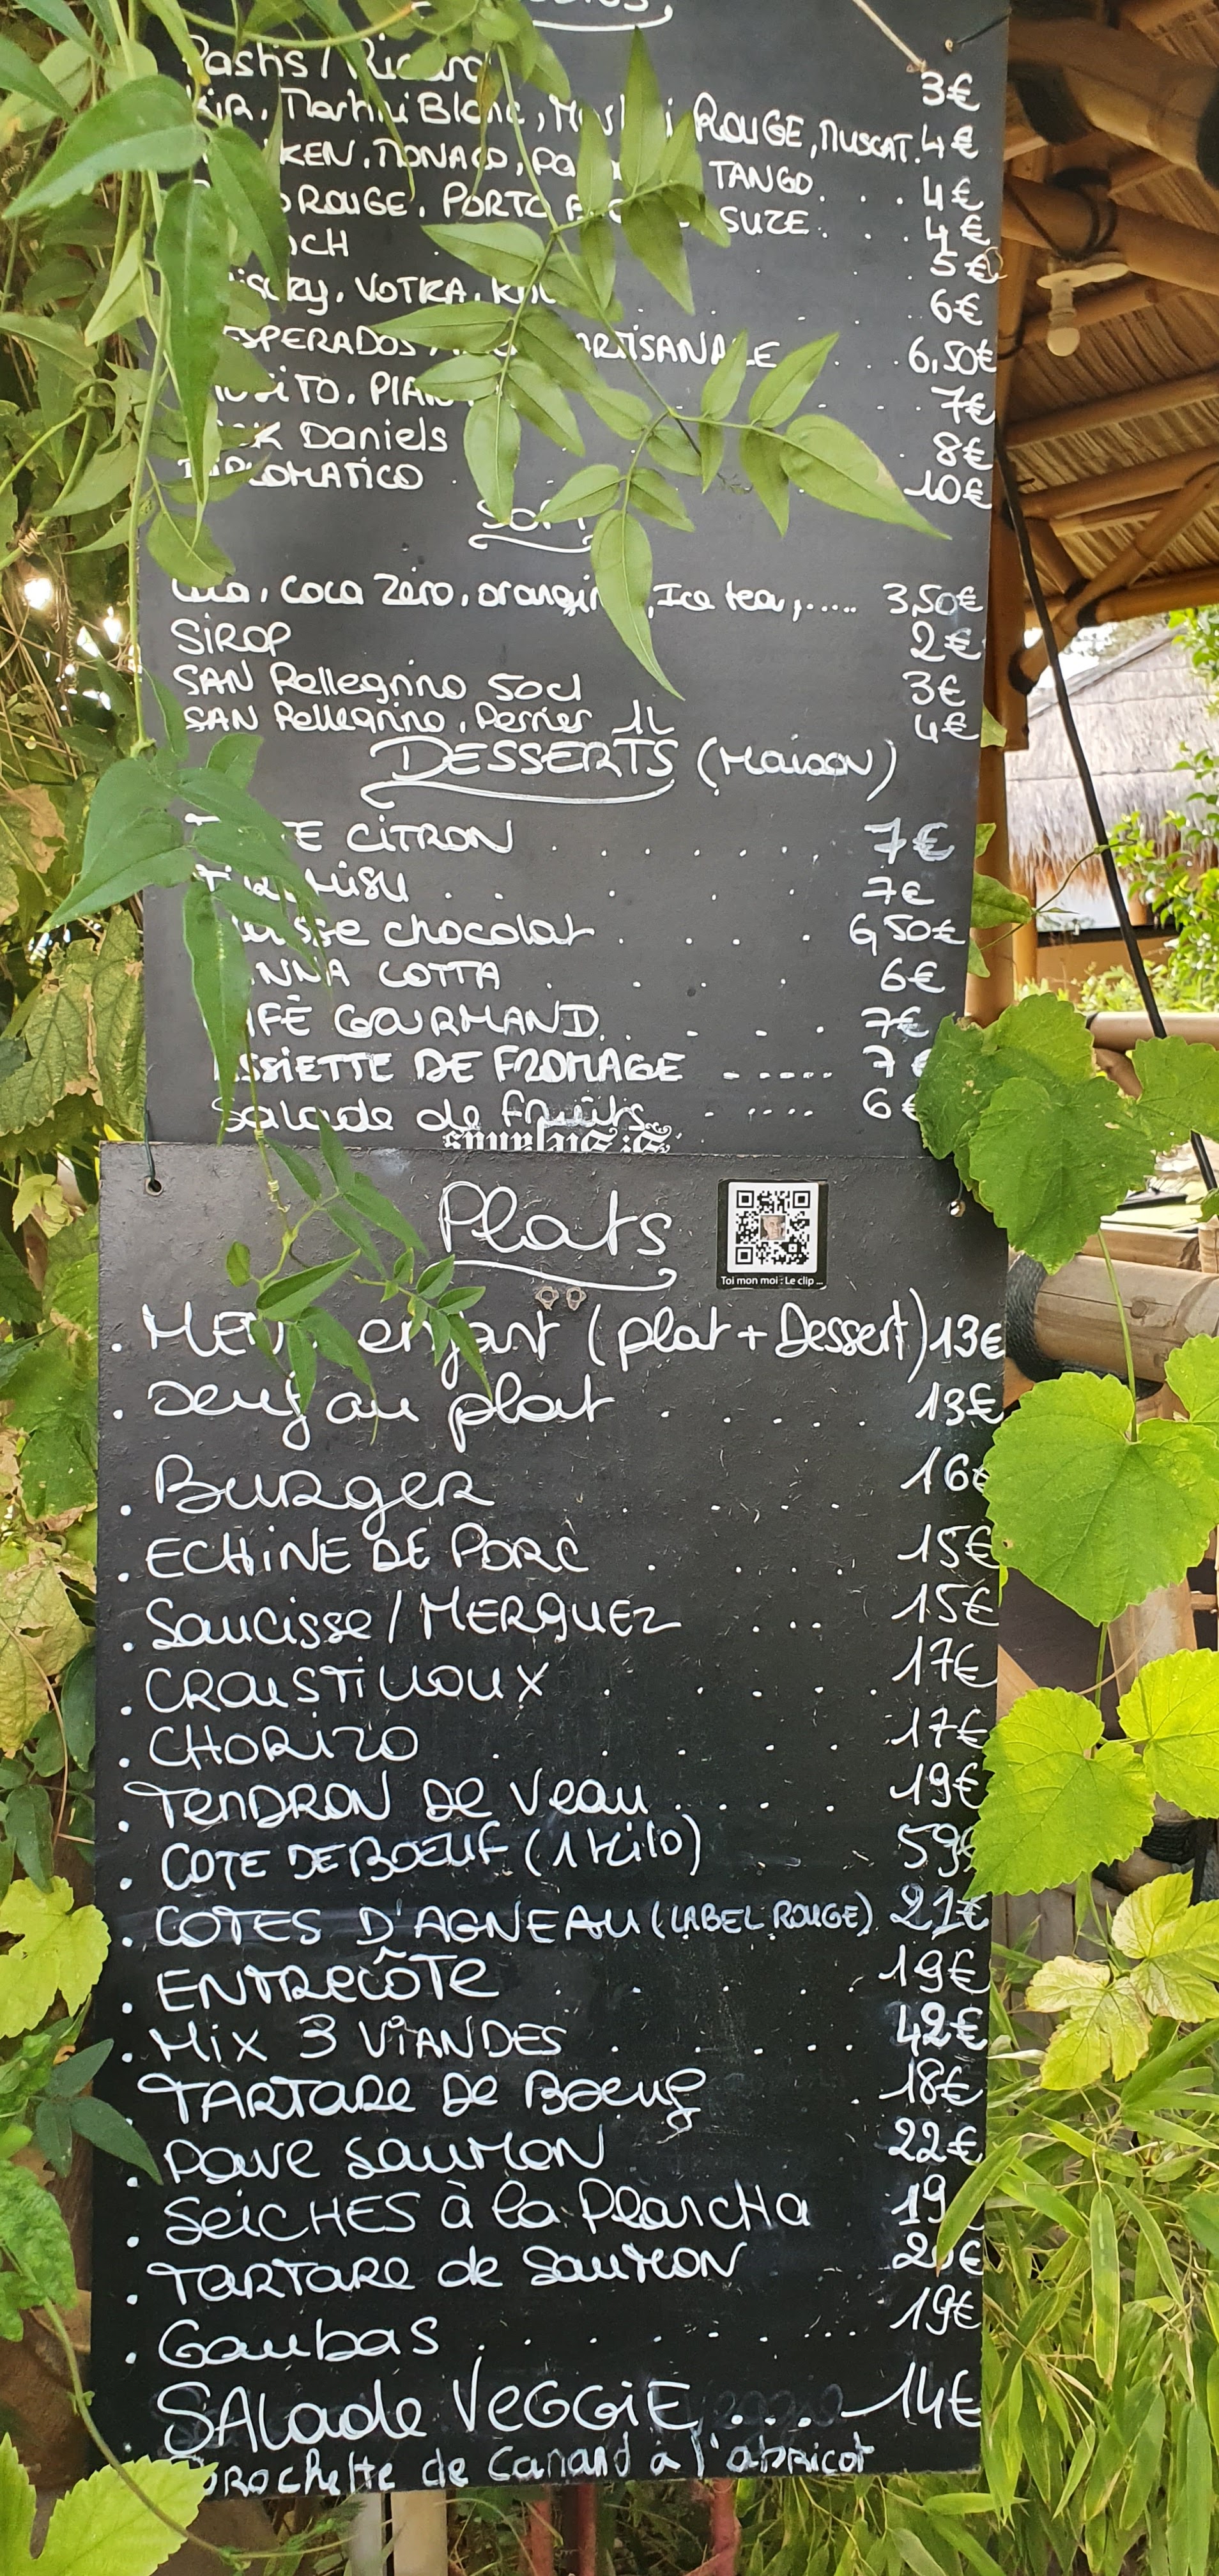 Pastis / Ricard 3€
Kir, Martini Blanc, Martini ROUGE, MUSCAT. 4€
KEN, MONACO, TANGO . . . 4€
ROUGE, PORTO SUZE . . . 4€
5€
VOTKA, 6€
ESPERADOS ARTISANALE . . 6,50€
7€
Daniels 8€
DIPLOMATICO . 10€
SOFT
Cola, Coca Zero, orangina, Ice tea, ..... 3,50€
SIROP 2€
SAN Pellegrino 50cl 3€
SAN Pellegrino, Perrier 1L 4€
DESSERTS (Maison)
TARTE CITRON . . . . . . 7€
TIRAMISU . . . . 7€
Mousse chocolat . . . . 6,50€
PANNA COTTA . . . 6€
CAFÉ GOURMAND . . . . 7€
ASSIETTE DE FROMAGE ..... 7€
Salade de fruits . .... 6€
Plats
Toi mon moi : Le clip ...
. MENU enfant (plat + Dessert) 13€
. Oeuf au plat . . . . . 13€
. BURGER . . . . 16€
. ECHINE DE PORC . . . . 15€
. Saucisse / MERGUEZ . . . 15€
. CROUSTILLOUX . . . . . 17€
. CHORIZO . . . . . . 17€
. TENDRON De Veau . . . . 19€
. COTE DE BOEUF (1 kilo) 59€
. COTES D'AGNEAU (LABEL ROUGE) 21€
. ENTRECÔTE . . . . . 19€
. MIX 3 VIANDES . . . . . 42€
. TARTARE De Boeuf . 18€
. Pave SAUMON 22€
. SEICHES à la PlanCHa 19
. TARTARE de SauMON 20€
. Gambas . . . . . . . . . 19€
SALade VeGGiE . . . . 14€
BROCHette de Canard à l'abricot